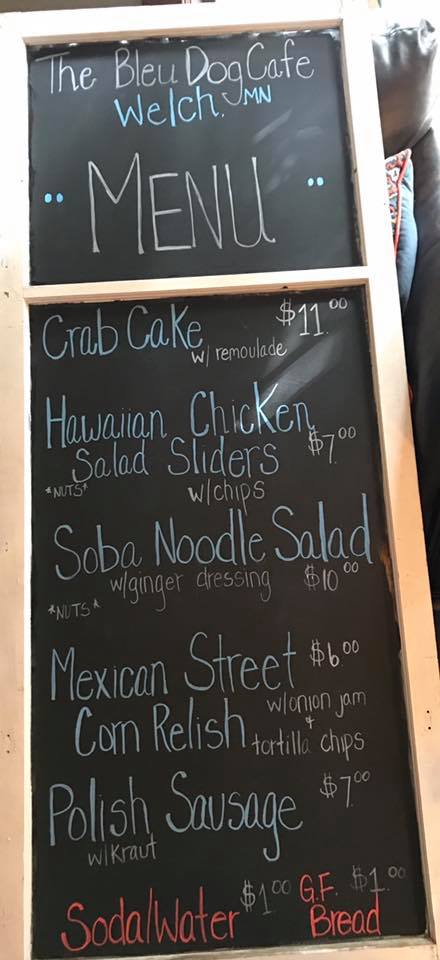 The Bleu Dog Cafe
Welch, MN
" MENU "
Crab Cake $11.00
w/ remoulade
Hawaiian Chicken
Salad Sliders $7.00
*NUTS* w/chips
Soba Noodle Salad
w/ginger dressing $10.00
*NUTS*
Mexican Street $6.00
w/onion jam
Corn Relish +
tortilla chips
Polish Sausage $7.00
w/Kraut
Soda/Water $1.00 G.F. Bread $1.00